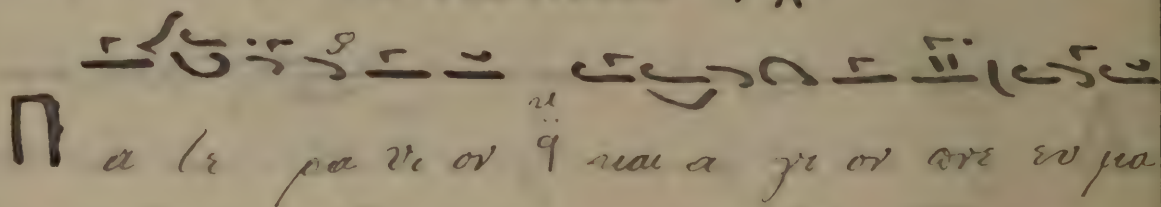 Πα τε ρα υι ον και α γι ον πνε ευ μα